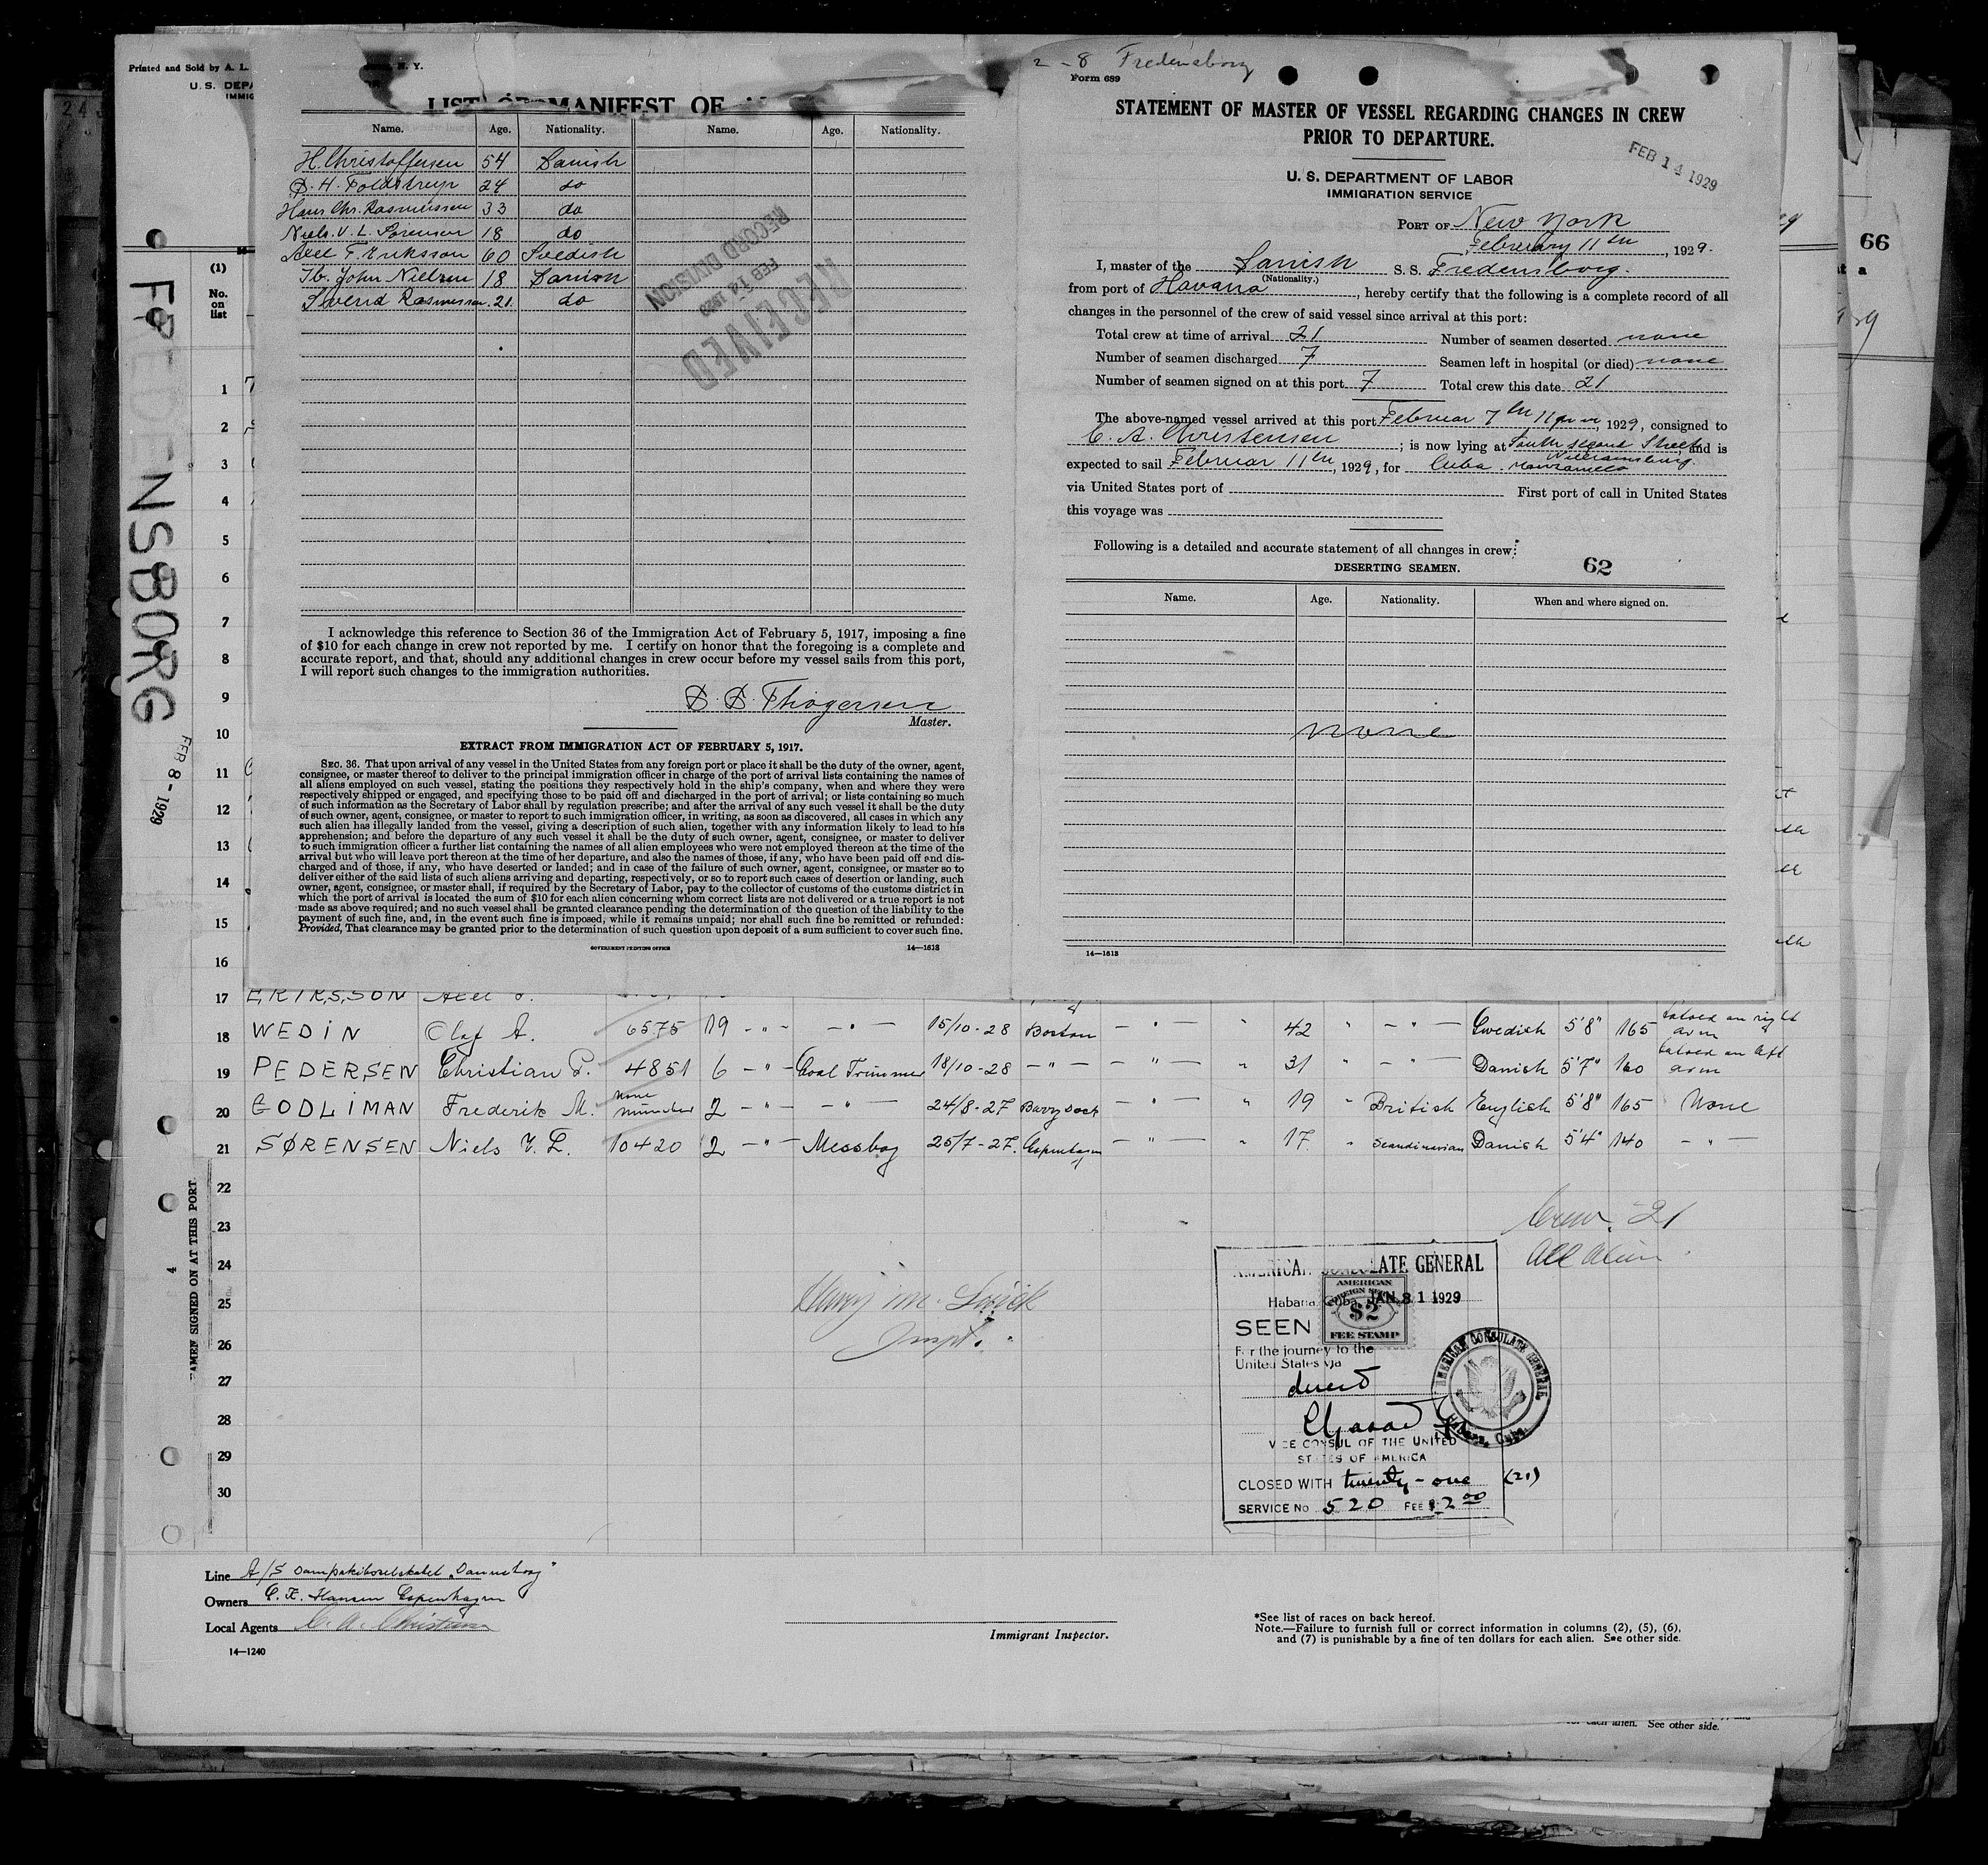 Printed and Sold by A. L.
N. Y.
U. S. DEPA
IMMIG
LIST OR MANIFEST OF
Name. Age. Nationality. Name. Age. Nationality.
H. Christoffersen 54 Danish
D. H. Foldstrup 24 do
Hans Chr. Rasmussen 33 do
Niels. V. L. Sørensen 18 do
Axel F. Eriksson 60 Swedish
Ib. John Nielsen 18 Danish
Svend Rasmussen. 21. do
RECEIVED
FEB 14 1929
RECORD DIVISION
I acknowledge this reference to Section 36 of the Immigration Act of February 5, 1917, imposing a fine
of $10 for each change in crew not reported by me. I certify on honor that the foregoing is a complete and
accurate report, and that, should any additional changes in crew occur before my vessel sails from this port,
I will report such changes to the immigration authorities.
Thøgersen
Master.
EXTRACT FROM IMMIGRATION ACT OF FEBRUARY 5, 1917.
SEC. 36. That upon arrival of any vessel in the United States from any foreign port or place it shall be the duty of the owner, agent,
consignee, or master thereof to deliver to the principal immigration officer in charge of the port of arrival lists containing the names of
all aliens employed on such vessel, stating the positions they respectively hold in the ship's company, when and where they were
respectively shipped or engaged, and specifying those to be paid off and discharged in the port of arrival; or lists containing so much
of such information as the Secretary of Labor shall by regulation prescribe; and after the arrival of any such vessel it shall be the duty
of such owner, agent, consignee, or master to report to such immigration officer, in writing, as soon as discovered, all cases in which any
such alien has illegally landed from the vessel, giving a description of such alien, together with any information likely to lead to his
apprehension; and before the departure of any such vessel it shall be the duty of such owner, agent, consignee, or master to deliver
to such immigration officer a further list containing the names of all alien employees who were not employed thereon at the time of the
arrival but who will leave port thereon at the time of her departure, and also the names of those, if any, who have been paid off and dis-
charged and of those, if any, who have deserted or landed; and in case of the failure of such owner, agent, consignee, or master so to
deliver either of the said lists of such aliens arriving and departing, respectively, or so to report such cases of desertion or landing, such
owner, agent, consignee, or master shall, if required by the Secretary of Labor, pay to the collector of customs of the customs district in
which the port of arrival is located the sum of $10 for each alien concerning whom correct lists are not delivered or a true report is not
made as above required; and no such vessel shall be granted clearance pending the determination of the question of the liability to the
payment of such fine, and, in the event such fine is imposed, while it remains unpaid; nor shall such fine be remitted or refunded:
Provided, That clearance may be granted prior to the determination of such question upon deposit of a sum sufficient to cover such fine.
GOVERNMENT PRINTING OFFICE 14—1613
2-8 Fredensborg
Form 689
STATEMENT OF MASTER OF VESSEL REGARDING CHANGES IN CREW
PRIOR TO DEPARTURE.
FEB 14 1929
U. S. DEPARTMENT OF LABOR
IMMIGRATION SERVICE
PORT OF New York
February 11th, 1929.
I, master of the Danish S. S. Fredensborg.
(Nationality.)
from port of Havana, hereby certify that the following is a complete record of all
changes in the personnel of the crew of said vessel since arrival at this port:
Total crew at time of arrival 21 Number of seamen deserted none
Number of seamen discharged 7 Seamen left in hospital (or died) none
Number of seamen signed on at this port 7 Total crew this date 21
The above-named vessel arrived at this port Februar 7th 11 pm, 1929, consigned to
C. A. Christensen; is now lying at South second Street Williamsburg and is
expected to sail Februar 11th, 1929, for Cuba. Manzanillo
via United States port of First port of call in United States
this voyage was
Following is a detailed and accurate statement of all changes in crew:
DESERTING SEAMEN. 62
Name. Age. Nationality. When and where signed on.
none
14—1613
66
FREDENSBORG
FEB 8 - 1929
(1)
No.
on
list
1
2
3
4
5
6
7
8
9
10
11
12
13
14
15
16
17 ERIKSSON Axel F.
18 WEDIN Olaf A. 6575 19 -"- -"- 15/10-28 Boston -"- " 42 " -"- Swedish 5'8" 165 tatoed on right arm
19 PEDERSEN Christian P. 4851 6 -"- Coal Trimmer 18/10-28 -"- -"- " 31 " -"- Danish 5'7" 160 tatoed on left arm
20 GODLIMAN Frederik M. none number 2 -"- -"- 24/8-27 Barry Dock -"- " 19 " British English 5'8" 165 None
21 SØRENSEN Niels V. L. 10420 2 -"- Messboy 25/7-27. Copenhagen -"- " 17 " Scandinavian Danish 5'4" 140 -"-
22
23
24
25
26
27
28
29
30
4
SEAMEN SIGNED ON AT THIS PORT
Crew. 21
All alien.
Inspt.
AMERICAN CONSULATE GENERAL
Habana, Cuba JAN 31 1929
AMERICAN FOREIGN SERVICE $2 FEE STAMP
SEEN
For the journey to the
United States via
direct
VICE CONSUL OF THE UNITED
STATES OF AMERICA
CLOSED WITH twenty-one (21)
SERVICE NO 520 FEE $2.00
AMERICAN CONSULATE GENERAL
Habana, Cuba.
Line A/S Dampskibsselskabet "Dannebrog"
Owners C. K. Hansen Copenhagen
Local Agents C. A. Christensen
14—1240
Immigrant Inspector.
*See list of races on back hereof.
Note.—Failure to furnish full or correct information in columns (2), (5), (6),
and (7) is punishable by a fine of ten dollars for each alien. See other side.
for each alien. See other side.